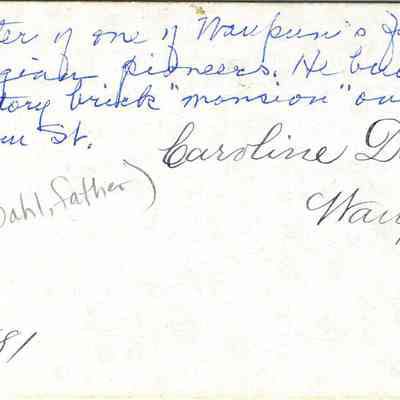 ter of one of Waupun's
gian pioneers. He
tory brick "mansion" on
St.
Caroline D
Wau
Dahl, father)
81